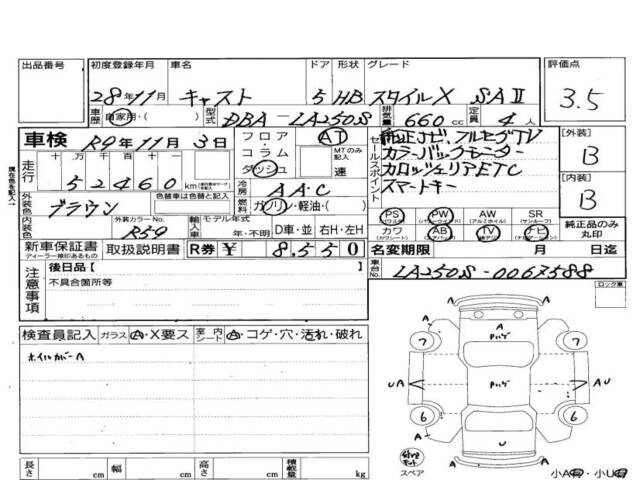 出品番号 初度登録年月 車名 ドア 形状 グレード 評価点
28年11月 キャスト 5 HB スタイルX SAⅡ 3.5
車歴 自家用・( ) 型式 DBA-LA250S 排気量 660cc 定員 4人
車検 R9年11月3日 フロア・コラム・ダッシュ AT MTのみ記入 速
セールスポイント 純正ナビ,フルセグTV
カラーバックモニター
カロッツェリアETC
スマートキー
[外装] B
[内装] B
走行 十万千百十一 52460km
冷房 AAC
燃料 ガソリン・軽油・( )
外装色 ブラウン 色替車は色替と記入
内装色 外装カラーNo. R59 輸入車 モデル年式 年・不明 D車・並 右H・左H
PS PW AW SR
(パワーウインド) (アルミホイル) (サンルーフ)
カワ AB TV ナビ
(カワシート) (エアバッグ)
純正品のみ丸印
新車保証書 取扱説明書 R券 ¥ 8,550
ディーラー捺印あるもの
名変期限 月 日迄
車台No. LA250S-0067588
注意事項 後日品【 】
不具合箇所等
ロック車
検査員記入 ガラス A・X要ス 室内シート A・コゲ・穴・汚れ・破れ
ホイルカバーA
A
A A
7 7
UA AU
6 6
A U A
A
スペア
小A ・小U
長さ cm 幅 cm 高さ cm 積載量 kg
現在色を記入